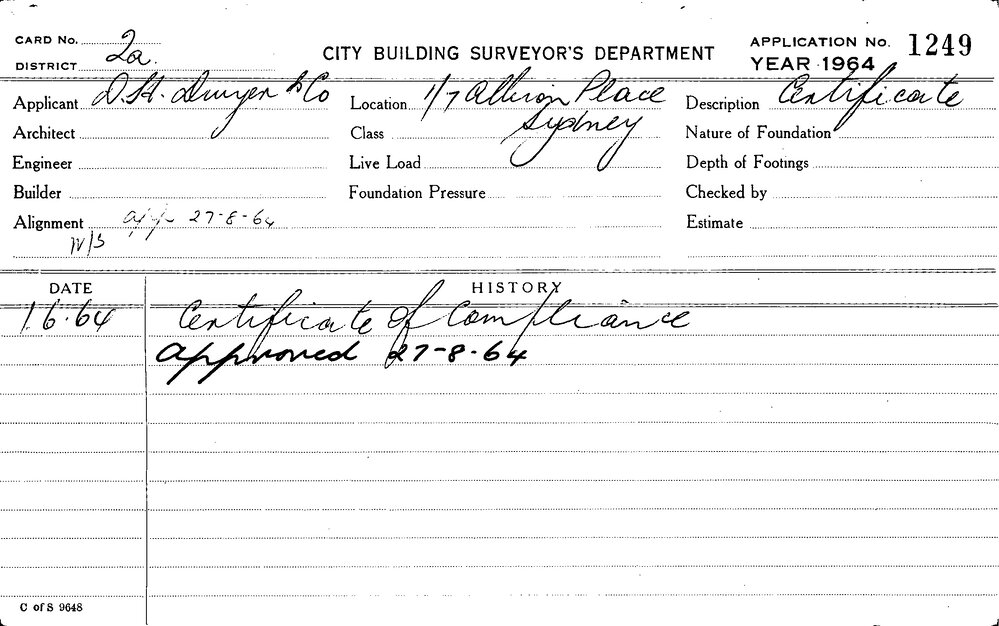 CARD No. 2a.
DISTRICT
CITY BUILDING SURVEYOR'S DEPARTMENT
APPLICATION No. 1249
YEAR 1964
Applicant D.H. Dwyer & Co
Location 1/7 Albion Place
Sydney
Description Certificate
Architect
Class
Nature of Foundation
Engineer
Live Load
Depth of Footings
Builder
Foundation Pressure
Checked by
Alignment app 27-8-64
Estimate
DATE
HISTORY
1.6.64 Certificate of Compliance
approved 27-8-64
C of S 9648